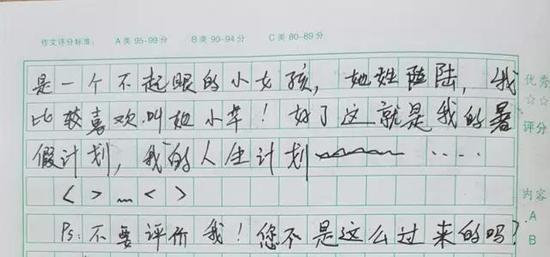 作文评分标准： A类 95-99分 B类 90-94分 C类 80-89分
是一个不起眼的小女孩，她姓陆，我
比较喜欢叫她小草！好了这就是我的暑
假计划，我的人生计划 ‥‥
< > … < >
Ps：不要评价我！您不是这么过来的吗？
优秀
☆☆
评分
内容
A
B